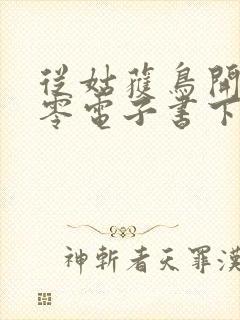 從姑獲鳥開
零電子書下
神斬者天罪漢